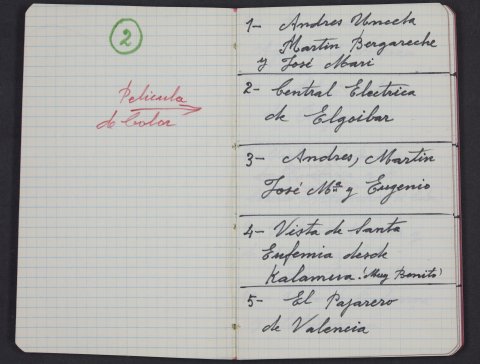 2
Pelicula
de Color
1- Andres Unceta
Martin Bergareche
y José Mari
2- Central Electrica
de Elgoibar
3- Andres, Martin
José Mª y Eugenio
4- Vista de Santa
Eufemia desde
Kalamera (Muy Bonito)
5- El Pajarero
de Valencia